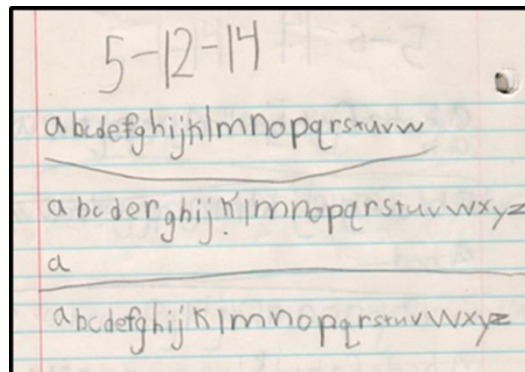 5-12-14
abcdefghijklmnopqrstuvw
abcderghijklmnopqrstuvwxyz
a
abcdefghijklmnopqrstuvwxyz